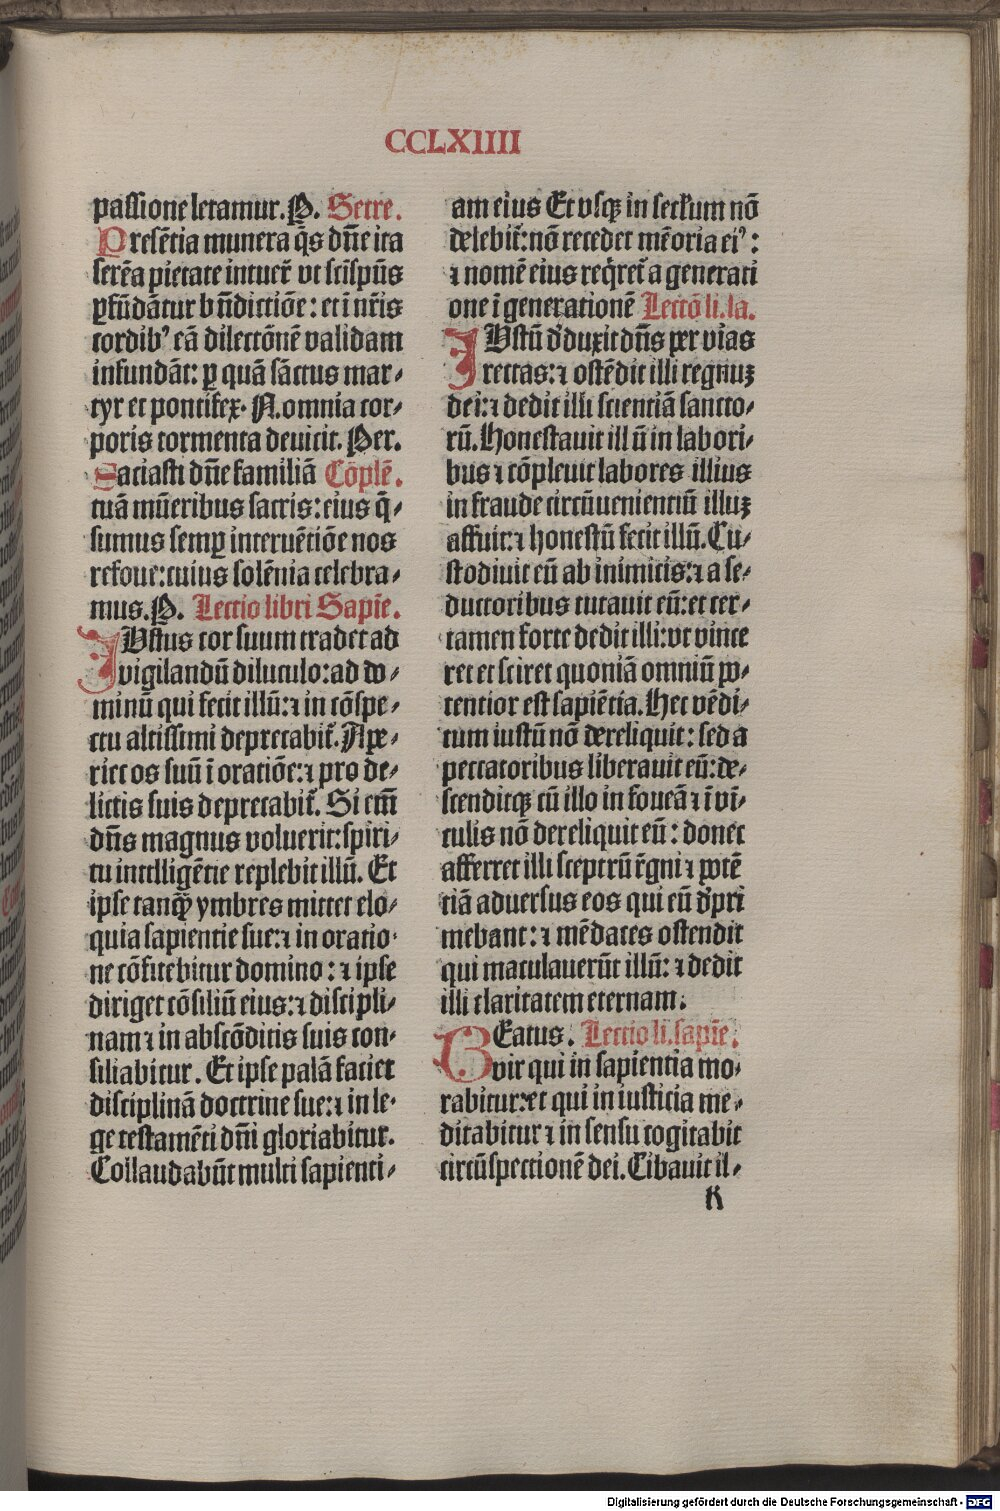 CCLXIIII
passione letamur. P. Secre.
Presẽtia munera q̃s dñe ita
serẽa pietate intuer̃ vt sc̃ispũs
ꝑfũdãtur bñdictiõe: et ĩ nr̃is
cordibꝰ eã dilectõnẽ validam
infundãt: ꝑ quã sãctus mar⸗
tyr et pontifex. N. omnia cor⸗
poris tormenta deuicit. Per.
Saciasti dñe familiã Cõplẽ.
tuã mũeribus sacris: eius q̃⸗
sumus semꝑ interuẽtiõe nos
refoue: cuius solẽnia celebra⸗
mus. P. Lectio libri Sapiẽ.
IVstus cor suum tradet ad
vigilandũ diluculo: ad do⸗
minũ qui fecit illũ: ⁊ in cõspe⸗
ctu altissimi deprecabit̃. Ape⸗
riet os suũ ĩ oratiõe: ⁊ pro de⸗
lictis suis deprecabit̃. Si em̃
dñs magnus voluerit: spiri⸗
tu intelligẽtie replebit illũ. Et
ipse tanqꝫ ymbres mittet elo⸗
quia sapientie sue: ⁊ in oratio⸗
ne cõfitebitur domino: ⁊ ipse
diriget cõsiliũ eius: ⁊ discipli⸗
nam ⁊ in abscõditis suis con⸗
siliabitur. Et ipse palã faciet
disciplinã doctrine sue: ⁊ in le⸗
ge testamẽti dñi gloriabitur.
Collaudabũt multi sapienti⸗
am eius Et vsqꝫ in seclum nõ
delebit̃: nõ recedet mẽoria eiꝰ:
⁊ nomẽ eius req̃ret̃ a generati
one ĩ generationẽ Lectõ li. la.
IVstũ dꝰduxit dñs per vias
rectas: ⁊ ostẽdit illi regnuꝫ
dei: ⁊ dedit illi scientiã sancto⸗
rũ. Honestauit illũ in labori⸗
bus ⁊ cõpleuit labores illius
in fraude circũuenientiũ illuꝫ
affuit: ⁊ honestũ fecit illũ. Cu⸗
stodiuit eũ ab inimicis: ⁊ a se⸗
ductoribus tutauit eũ: et cer⸗
tamen forte dedit illi: vt vince
ret et sciret quoniã omniũ po⸗
tentior est sapiẽtia. Hec vẽdi⸗
tum iustũ nõ dereliquit: sed a
peccatoribus liberauit eũ: de⸗
scenditqꝫ cũ illo in foueã ⁊ ĩ vĩ⸗
culis nõ dereliquit eũ: donec
afferret illi sceptrũ r̃gni ⁊ potẽ
tiã aduersus eos qui eũ dꝰpri
mebant: ⁊ mẽdaces ostendit
qui maculauerũt illũ: ⁊ dedit
illi claritatem eternam.
BEatus. Lectio li. sapiẽ.
vir qui in sapientia mo⸗
rabitur: et qui in iusticia me⸗
ditabitur ⁊ in sensu cogitabit
circũspectionẽ dei. Cibauit il⸗
K
Digitalisierung gefördert durch die Deutsche Forschungsgemeinschaft - DFG